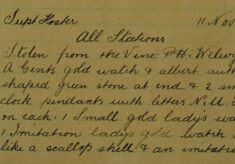 Supt Foster 11 Nov
All Stations
Stolen from the Vine P.H. Welwy
A Gents gold watch & albert with
shaped green stone at end & 2 sm
clock pendants with letters N.U.
on each. 1 Small gold ladys wa
1 Imitation ladys gold watch s
like a scallop shell & an imitati